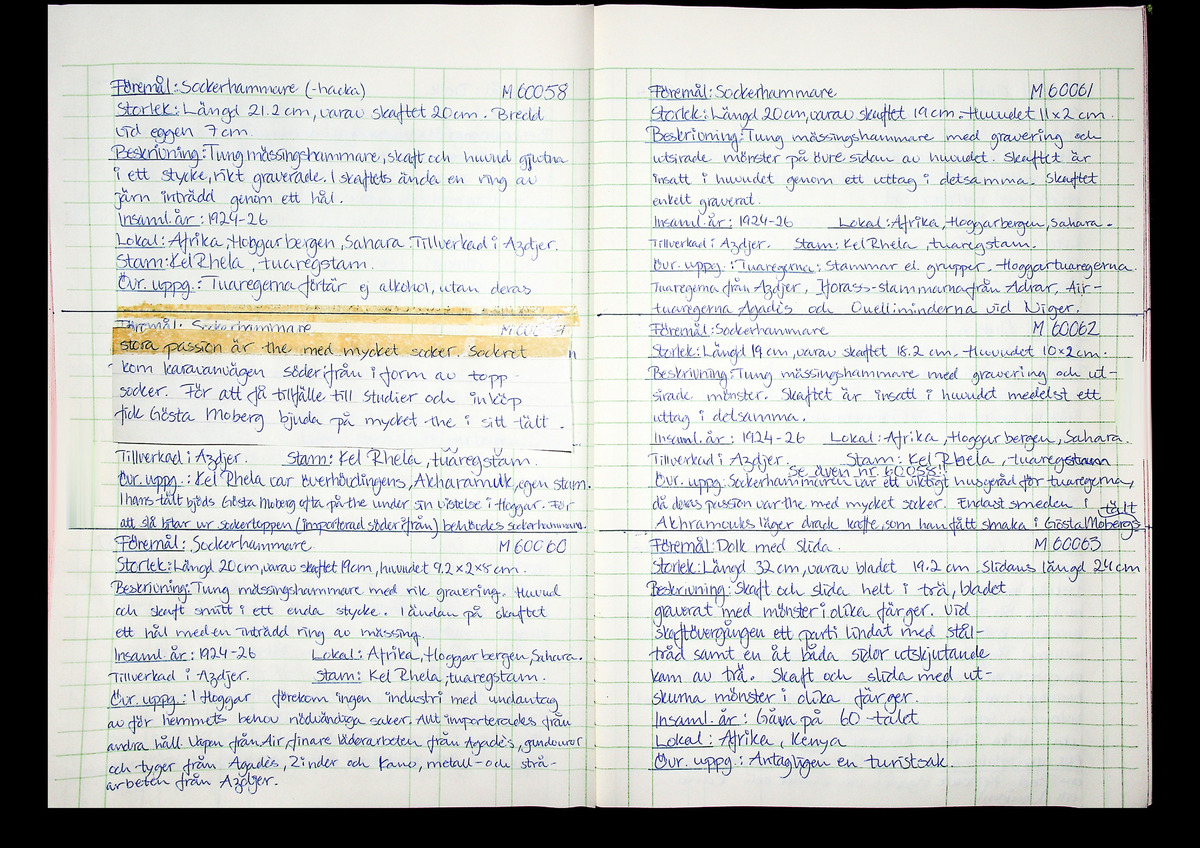 Föremål: Sockerhammare (-hacka) M 60058
Storlek: Längd 21.2 cm, varav skaftet 20 cm. Bredd
vid eggen 7 cm.
Beskrivning: Tung mässingshammare, skaft och huvud gjutna
i ett stycke, rikt graverade. I skaftets ända en ring av
järn inträdd genom ett hål.
Insaml. år: 1924-26
Lokal: Afrika, Hoggarbergen, Sahara. Tillverkad i Azdjer.
Stam: Kel Rhela, tuaregstam.
Övr. uppg.: Tuaregerna förtär ej alkohol, utan deras
Föremål: Sockerhammare
stora passion är the med mycket socker. Sockret
kom karavanvägen söderifrån i form av topp-
socker. För att få tillfälle till studier och inköp
fick Gösta Moberg bjuda på mycket the i sitt tält.
Tillverkad i Azdjer. Stam: Kel Rhela, tuaregstam.
Övr. uppg.: Kel Rhela var överhövdingens, Akharamuk, egen stam.
I hans tält bjöds Gösta Moberg ofta på the under sin vistelse i Hoggar. För
att slå bitar ur sockertoppen (importerad söderifrån) behövdes sockerhammare.
Föremål: Sockerhammare M 60060
Storlek: Längd 20 cm, varav skaftet 19 cm, huvudet 9.2×2×5 cm.
Beskrivning: Tung mässingshammare med rik gravering. Huvud
och skaft smitt i ett enda stycke. I ändan på skaftet
ett hål med en inträdd ring av mässing.
Insaml. år: 1924-26 Lokal: Afrika, Hoggarbergen, Sahara.
Tillverkad i Azdjer. Stam: Kel Rhela, tuaregstam.
Övr. uppg.: I Hoggar förekom ingen industri med undantag
av för hemmets behov nödvändiga saker. Allt importerades från
andra håll. Vapen från Air, finare läderarbeten från Agadès, gandouror
och tyger från Agadès, Zinder och Kano, metall- och strå-
arbeten från Azdjer.
Föremål: Sockerhammare M 60061
Storlek: Längd 20 cm, varav skaftet 19 cm. Huvudet 11×2 cm.
Beskrivning: Tung mässingshammare med gravering och
utsirade mönster på övre sidan av huvudet. Skaftet är
insatt i huvudet genom ett uttag i detsamma. Skaftet
enkelt graverat.
Insaml. år: 1924-26 Lokal: Afrika, Hoggarbergen, Sahara.
Tillverkad i Azdjer. Stam: Kel Rhela, tuaregstam.
Övr. uppg.: Tuaregerna: Stammar el. grupper. Hoggartuaregerna.
Tuaregerna från Azdjer, Iforass-stammarna från Adrar, Air-
tuaregerna Agadès och Ouelliminderna vid Niger.
Föremål: Sockerhammare M 60062
Storlek: Längd 19 cm, varav skaftet 18.2 cm. Huvudet 10×2 cm.
Beskrivning: Tung mässingshammare med gravering och ut-
sirade mönster. Skaftet är insatt i huvudet medelst ett
uttag i detsamma.
Insaml. år: 1924-26 Lokal: Afrika, Hoggarbergen, Sahara.
Tillverkad i Azdjer. Stam: Kel Rhela, tuaregstam
Se även nr. 60058!!
Övr. uppg: Sockerhammaren var ett viktigt husgeråd för tuaregerna,
då deras passion var the med mycket socker. Endast smeden i
Akhramouks läger drack kaffe, som han fått smaka i Gösta Mobergs tält
Föremål: Dolk med slida. M 60063
Storlek: Längd 32 cm, varav bladet 19.2 cm. Slidans längd 24 cm
Beskrivning: Skaft och slida helt i trä, bladet
graverat med mönster i olika färger. Vid
skaftövergången ett parti lindat med stål-
tråd samt en åt båda sidor utskjutande
kam av trä. Skaft och slida med ut-
skurna mönster i olika färger.
Insaml. år: Gåva på 60-talet
Lokal: Afrika, Kenya
Övr. uppg.: Antagligen en turistsak.